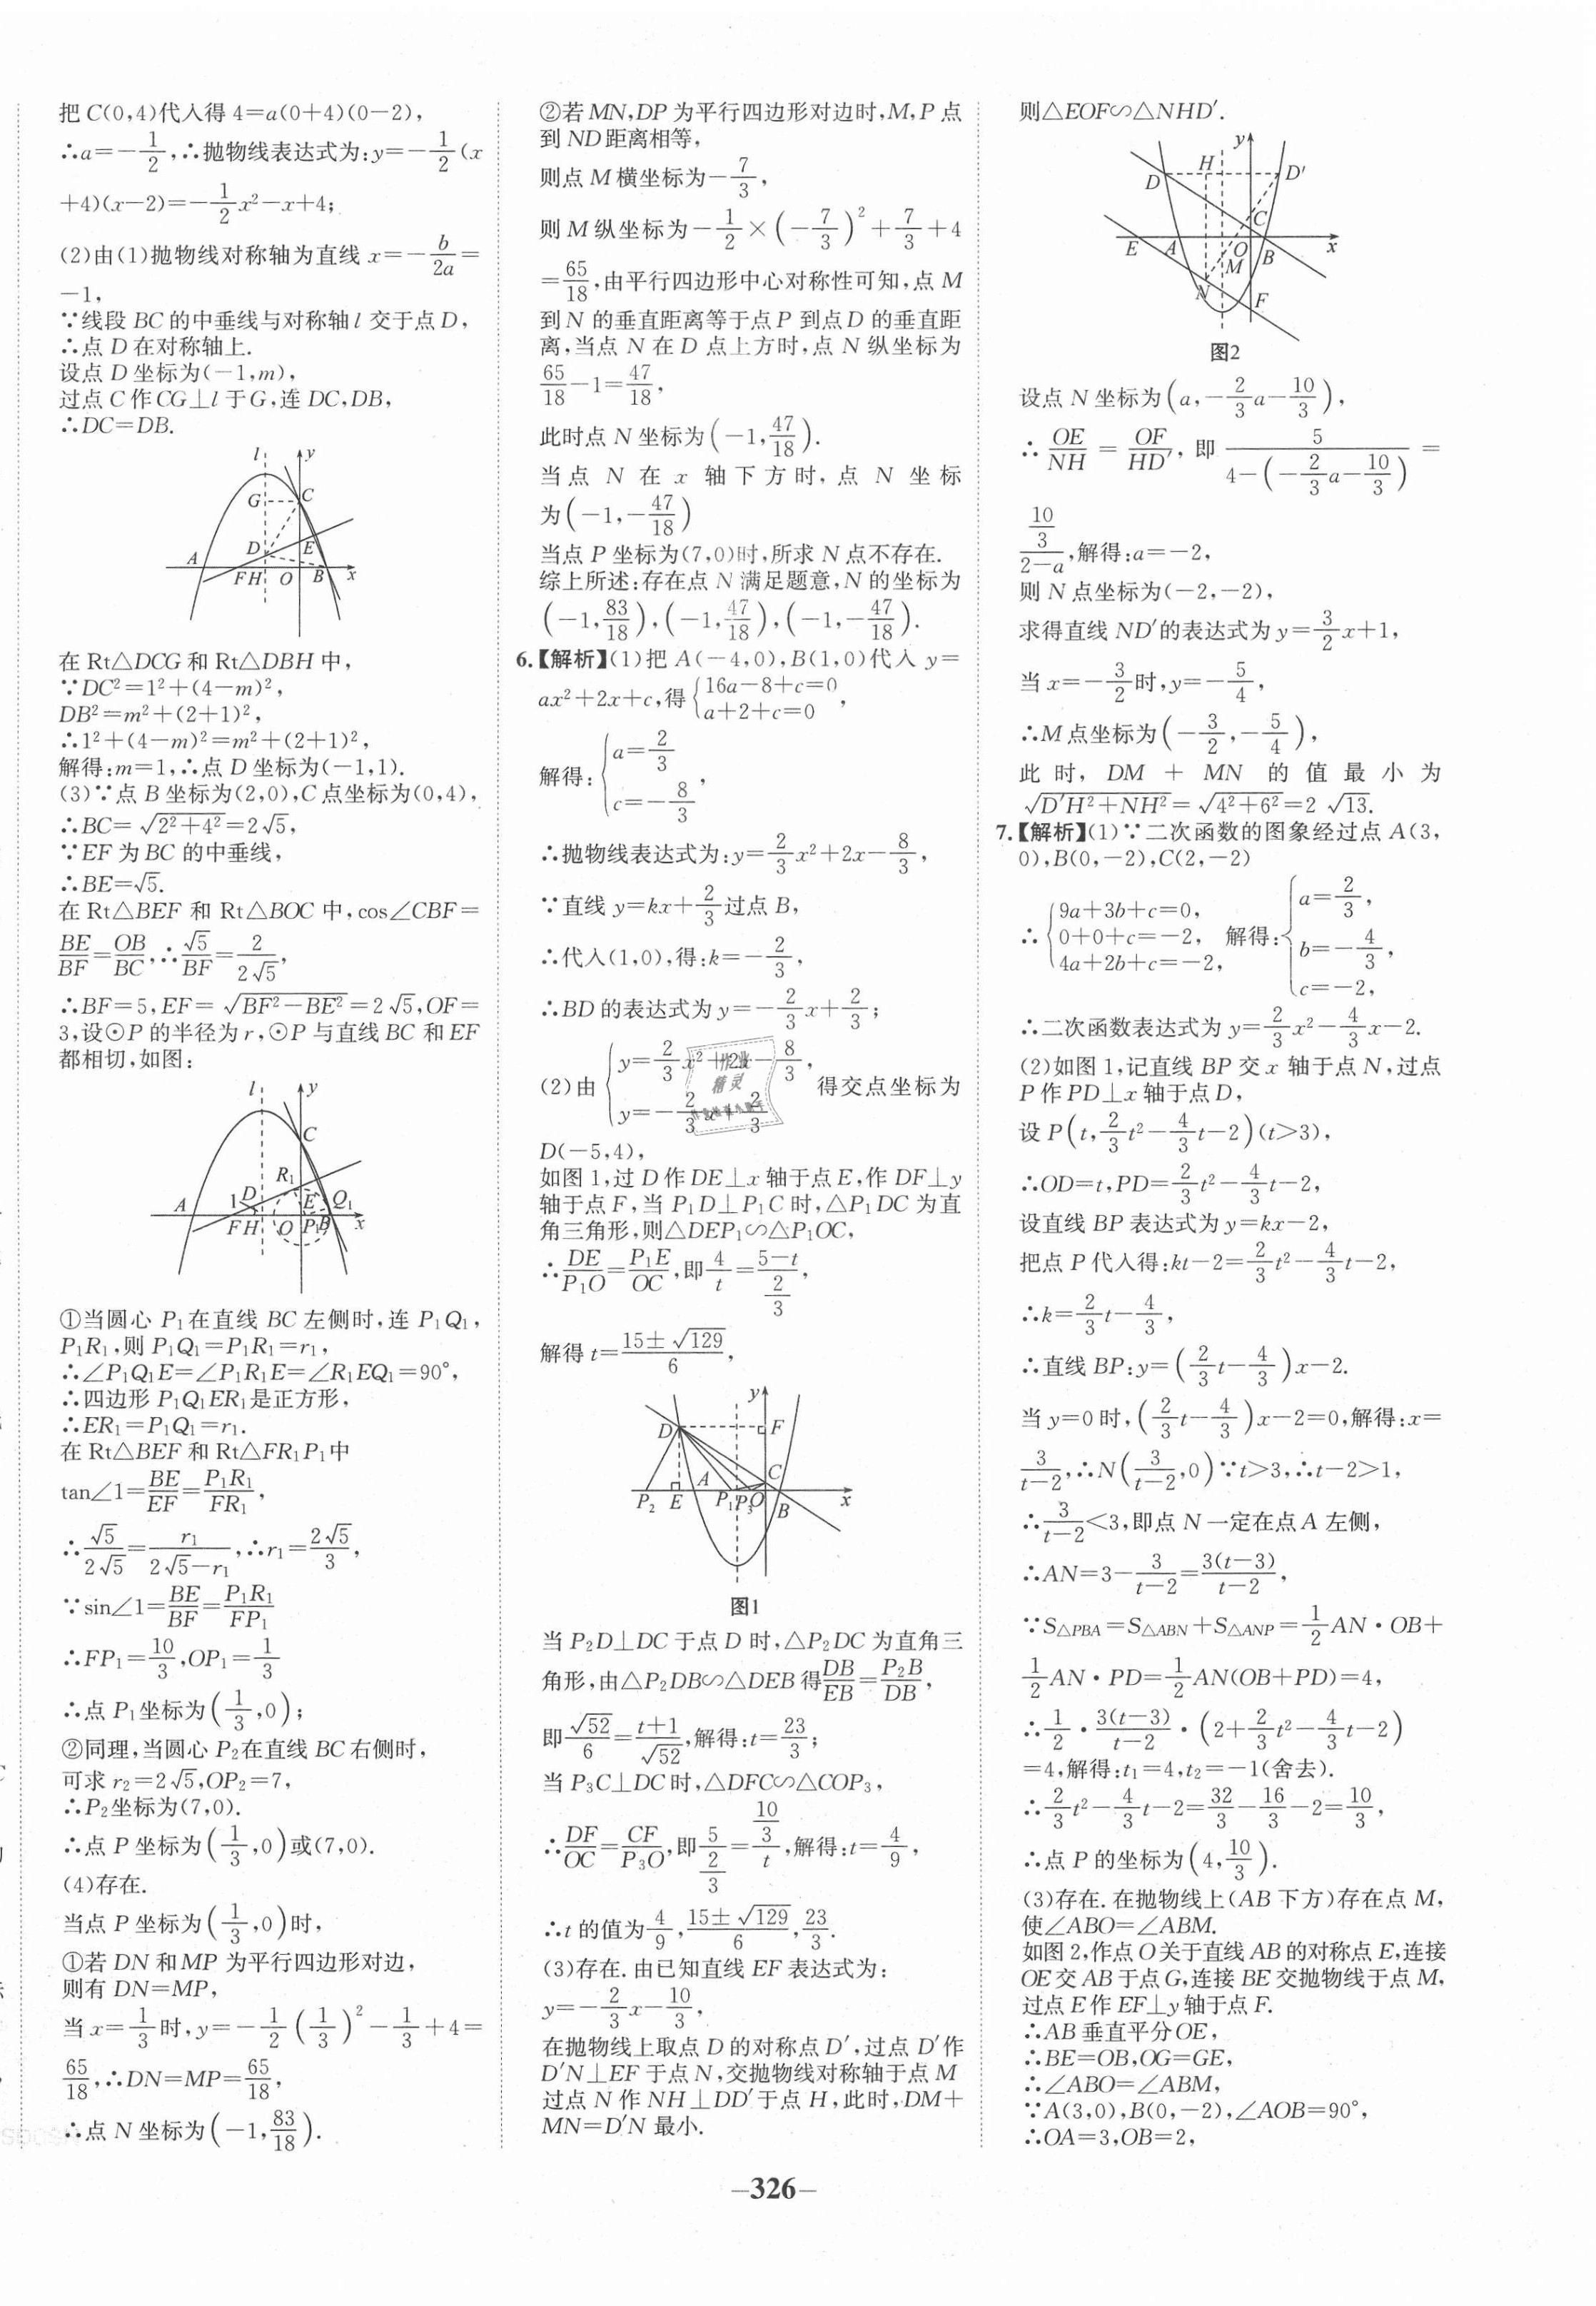 把C(0,4)代入得 4=a(0+4)(0-2),
∴a=-1/2,∴抛物线表达式为:y=-1/2(x
+4)(x-2)=-1/2x²-x+4;
(2)由(1)抛物线对称轴为直线 x=-b/2a=
-1,
∵线段 BC 的中垂线与对称轴 l 交于点 D,
∴点 D 在对称轴上.
设点 D 坐标为(-1,m),
过点 C 作 CG⊥l 于 G,连 DC,DB,
∴DC=DB.
l y G C D E A F H O B x
在 Rt△DCG 和 Rt△DBH 中,
∵DC²=1²+(4-m)²,
DB²=m²+(2+1)²,
∴1²+(4-m)²=m²+(2+1)²,
解得:m=1,∴点 D 坐标为(-1,1).
(3)∵点 B 坐标为(2,0),C 点坐标为(0,4),
∴BC=√(2²+4²)=2√5,
∵EF 为 BC 的中垂线,
∴BE=√5.
在 Rt△BEF 和 Rt△BOC 中,cos∠CBF=
BE/BF=OB/BC,∴√5/BF=2/(2√5),
∴BF=5,EF=√(BF²-BE²)=2√5,OF=
3,设⊙P 的半径为 r,⊙P 与直线 BC 和 EF
都相切,如图:
l y C R₁ A 1 D E Q₁ F H O P₁ B x
①当圆心 P₁ 在直线 BC 左侧时,连 P₁Q₁,
P₁R₁,则 P₁Q₁=P₁R₁=r₁,
∴∠P₁Q₁E=∠P₁R₁E=∠R₁EQ₁=90°,
∴四边形 P₁Q₁ER₁ 是正方形,
∴ER₁=P₁Q₁=r₁.
在 Rt△BEF 和 Rt△FR₁P₁ 中
tan∠1=BE/EF=P₁R₁/FR₁,
∴√5/(2√5)=r₁/(2√5-r₁),∴r₁=2√5/3,
∵sin∠1=BE/BF=P₁R₁/FP₁
∴FP₁=10/3,OP₁=1/3
∴点 P₁ 坐标为(1/3,0);
②同理,当圆心 P₂ 在直线 BC 右侧时,
可求 r₂=2√5,OP₂=7,
∴P₂ 坐标为(7,0).
∴点 P 坐标为(1/3,0)或(7,0).
(4)存在.
当点 P 坐标为(1/3,0)时,
①若 DN 和 MP 为平行四边形对边,
则有 DN=MP,
当 x=1/3时,y=-1/2(1/3)²-1/3+4=
65/18,∴DN=MP=65/18,
∴点 N 坐标为(-1,83/18).
②若 MN,DP 为平行四边形对边时,M,P 点
到 ND 距离相等,
则点 M 横坐标为-7/3,
则 M 纵坐标为-1/2×(-7/3)²+7/3+4
=65/18,由平行四边形中心对称性可知,点 M
到 N 的垂直距离等于点 P 到点 D 的垂直距
离,当点 N 在 D 点上方时,点 N 纵坐标为
65/18-1=47/18,
此时点 N 坐标为(-1,47/18).
当点 N 在 x 轴下方时,点 N 坐标
为(-1,-47/18)
当点 P 坐标为(7,0)时,所求 N 点不存在.
综上所述:存在点 N 满足题意,N 的坐标为
(-1,83/18),(-1,47/18),(-1,-47/18).
6.【解析】(1)把 A(-4,0),B(1,0)代入 y=
ax²+2x+c,得{16a-8+c=0 a+2+c=0,
解得:{a=2/3 c=-8/3,
∴抛物线表达式为:y=2/3x²+2x-8/3,
∵直线 y=kx+2/3过点 B,
∴代入(1,0),得:k=-2/3,
∴BD 的表达式为 y=-2/3x+2/3;
(2)由{y=2/3x²+2x-8/3, y=-2/3x+2/3 得交点坐标为
作业
精灵
D(-5,4),
如图 1,过 D 作 DE⊥x 轴于点 E,作 DF⊥y
轴于点 F,当 P₁D⊥P₁C 时,△P₁DC 为直
角三角形,则△DEP₁∽△P₁OC,
∴DE/P₁O=P₁E/OC,即4/t=(5-t)/(2/3),
解得 t=(15±√129)/6,
y D F A C P₂ E P₁ P₃ O B x
图1
当 P₂D⊥DC 于点 D 时,△P₂DC 为直角三
角形,由△P₂DB∽△DEB 得DB/EB=P₂B/DB,
即√52/6=(t+1)/√52,解得:t=23/3;
当 P₃C⊥DC 时,△DFC∽△COP₃,
∴DF/OC=CF/P₃O,即5/(2/3)=(10/3)/t,解得:t=4/9,
∴t 的值为4/9,(15±√129)/6,23/3.
(3)存在.由已知直线 EF 表达式为:
y=-2/3x-10/3,
在抛物线上取点 D 的对称点 D′,过点 D′作
D′N⊥EF 于点 N,交抛物线对称轴于点 M
过点 N 作 NH⊥DD′于点 H,此时,DM+
MN=D′N 最小.
则△EOF∽△NHD′.
y H D D′ C E A O B x M N F
图2
设点 N 坐标为(a,-2/3a-10/3),
∴OE/NH=OF/HD′,即5/(4-(-2/3a-10/3))=
(10/3)/(2-a),解得:a=-2,
则 N 点坐标为(-2,-2),
求得直线 ND′的表达式为 y=3/2x+1,
当 x=-3/2时,y=-5/4,
∴M 点坐标为(-3/2,-5/4),
此时,DM+MN 的值最小为
√(D′H²+NH²)=√(4²+6²)=2√13.
7.【解析】(1)∵二次函数的图象经过点 A(3,
0),B(0,-2),C(2,-2)
∴{9a+3b+c=0, 0+0+c=-2, 4a+2b+c=-2, 解得:{a=2/3, b=-4/3, c=-2,
∴二次函数表达式为 y=2/3x²-4/3x-2.
(2)如图 1,记直线 BP 交 x 轴于点 N,过点
P 作 PD⊥x 轴于点 D,
设 P(t,2/3t²-4/3t-2)(t>3),
∴OD=t,PD=2/3t²-4/3t-2,
设直线 BP 表达式为 y=kx-2,
把点 P 代入得:kt-2=2/3t²-4/3t-2,
∴k=2/3t-4/3,
∴直线 BP:y=(2/3t-4/3)x-2.
当 y=0 时,(2/3t-4/3)x-2=0,解得:x=
3/(t-2),∴N(3/(t-2),0)∵t>3,∴t-2>1,
∴3/(t-2)<3,即点 N 一定在点 A 左侧,
∴AN=3-3/(t-2)=3(t-3)/(t-2),
∵S△PBA=S△ABN+S△ANP=1/2AN·OB+
1/2AN·PD=1/2AN(OB+PD)=4,
∴1/2·3(t-3)/(t-2)·(2+2/3t²-4/3t-2)
=4,解得:t₁=4,t₂=-1(舍去).
∴2/3t²-4/3t-2=32/3-16/3-2=10/3,
∴点 P 的坐标为(4,10/3).
(3)存在.在抛物线上(AB 下方)存在点 M,
使∠ABO=∠ABM.
如图 2,作点 O 关于直线 AB 的对称点 E,连接
OE 交 AB 于点 G,连接 BE 交抛物线于点 M,
过点 E 作 EF⊥y 轴于点 F.
∴AB 垂直平分 OE,
∴BE=OB,OG=GE,
∴∠ABO=∠ABM,
∵A(3,0),B(0,-2),∠AOB=90°,
∴OA=3,OB=2,
-326-